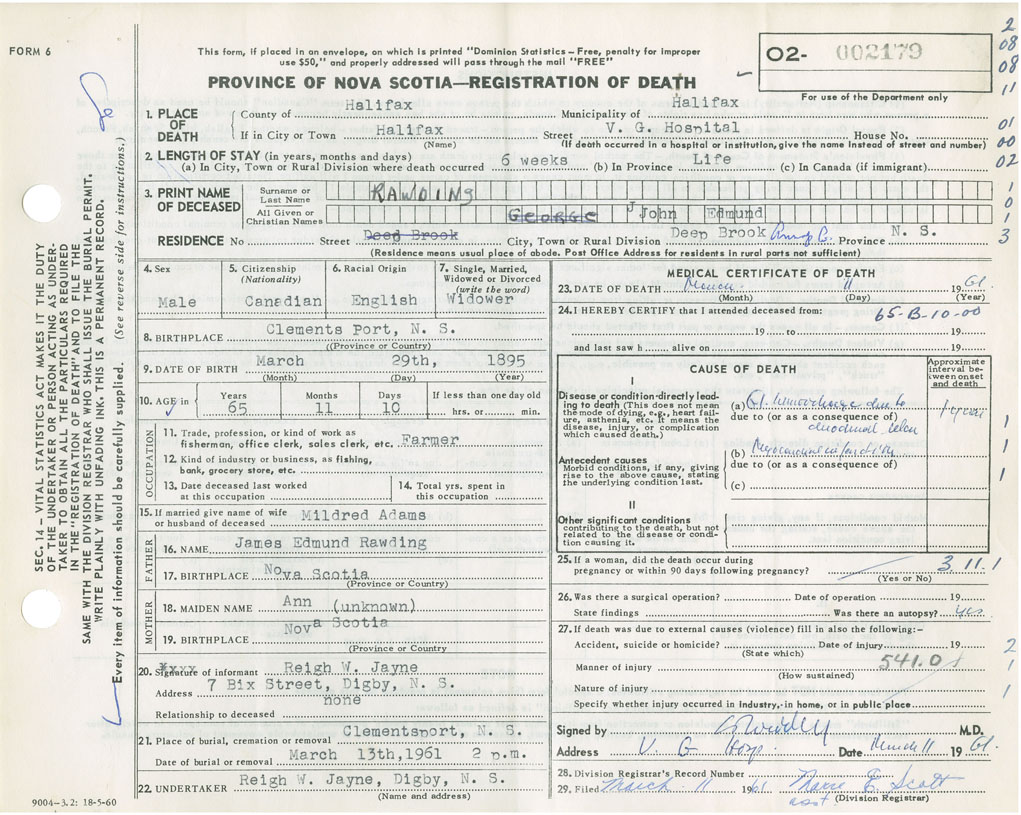 FORM 6
This form, if placed in an envelope, on which is printed "Dominion Statistics – Free, penalty for improper
use $50," and properly addressed will pass through the mail "FREE"
PROVINCE OF NOVA SCOTIA—REGISTRATION OF DEATH
02- 002179
For use of the Department only
2
08
08
11
01
00
02
1
0
1
3
1. PLACE OF DEATH
County of Halifax Municipality of Halifax
If in City or Town Halifax Street V. G. Hospital House No.
(Name) (If death occurred in a hospital or institution, give the name instead of street and number)
2. LENGTH OF STAY (in years, months and days)
(a) In City, Town or Rural Division where death occurred 6 weeks (b) In Province Life (c) In Canada (if immigrant)
3. PRINT NAME OF DECEASED
Surname or Last Name RAWDING
All Given or Christian Names GEORGE J John Edmund
RESIDENCE No Street Deep Brook City, Town or Rural Division Deep Brook Province N. S.
(Residence means usual place of abode. Post Office Address for residents in rural parts not sufficient)
4. Sex Male
5. Citizenship (Nationality) Canadian
6. Racial Origin English
7. Single, Married, Widowed or Divorced (write the word) Widower
8. BIRTHPLACE Clements Port, N. S.
(Province or Country)
9. DATE OF BIRTH March 29th, 1895
(Month) (Day) (Year)
10. AGE in Years 65 Months 11 Days 10 If less than one day old hrs. or min.
OCCUPATION
11. Trade, profession, or kind of work as
fisherman, office clerk, sales clerk, etc. Farmer
12. Kind of industry or business, as fishing,
bank, grocery store, etc.
13. Date deceased last worked
at this occupation
14. Total yrs. spent in
this occupation
15. If married give name of wife
or husband of deceased Mildred Adams
FATHER
16. NAME James Edmund Rawding
17. BIRTHPLACE Nova Scotia
(Province or Country)
MOTHER
18. MAIDEN NAME Ann (unknown)
19. BIRTHPLACE Nova Scotia
(Province or Country
20. Signature of informant Reigh W. Jayne
Address 7 Bix Street, Digby, N. S.
Relationship to deceased none
21. Place of burial, cremation or removal Clementsport, N. S.
Date of burial or removal March 13th,1961 2 p.m.
22. UNDERTAKER Reigh W. Jayne, Digby, N. S.
(Name and address)
9004-3.2: 18-5-60
MEDICAL CERTIFICATE OF DEATH
23. DATE OF DEATH March 11 1961
(Month) (Day) (Year)
24. I HEREBY CERTIFY that I attended deceased from: 65-B-10-00
19 to 19
and last saw h alive on 19
CAUSE OF DEATH
Approximate interval between onset and death
I
Disease or condition directly leading to death (This does not mean
the mode of dying, e.g., heart failure, asthenia, etc. It means the
disease, injury, or complication
which caused death.)
(a) G.I. hemorrhage due to
due to (or as a consequence of)
duodenal ulcer
Antecedent causes
Morbid conditions, if any, giving
rise to the above cause, stating
the underlying condition last.
(b) Myocardial infarction
due to (or as a consequence of)
(c)
II
Other significant conditions
contributing to the death, but not
related to the disease or condition causing it.
1
1
1
25. If a woman, did the death occur during
pregnancy or within 90 days following pregnancy? 3.11.1
(Yes or No)
26. Was there a surgical operation? Date of operation 19
State findings Was there an autopsy? yes
27. If death was due to external causes (violence) fill in also the following:–
Accident, suicide or homicide? Date of injury 19
(State which)
Manner of injury 541.0
(How sustained)
Nature of injury
Specify whether injury occurred in industry, in home, or in public place
2
1
1
Signed by M.D.
Address V. G Hosp. Date March 11 1961.
28. Division Registrar's Record Number
29. Filed March 11 1961 Marie E. Scott
asst (Division Registrar)
SEC. 14 – VITAL STATISTICS ACT MAKES IT THE DUTY
OF THE UNDERTAKER OR PERSON ACTING AS UNDERTAKER TO OBTAIN ALL THE PARTICULARS REQUIRED
IN THE "REGISTRATION OF DEATH" AND TO FILE THE
SAME WITH THE DIVISION REGISTRAR WHO SHALL ISSUE THE BURIAL PERMIT.
WRITE PLAINLY WITH UNFADING INK. THIS IS A PERMANENT RECORD.
Every item of information should be carefully supplied. (See reverse side for instructions.)